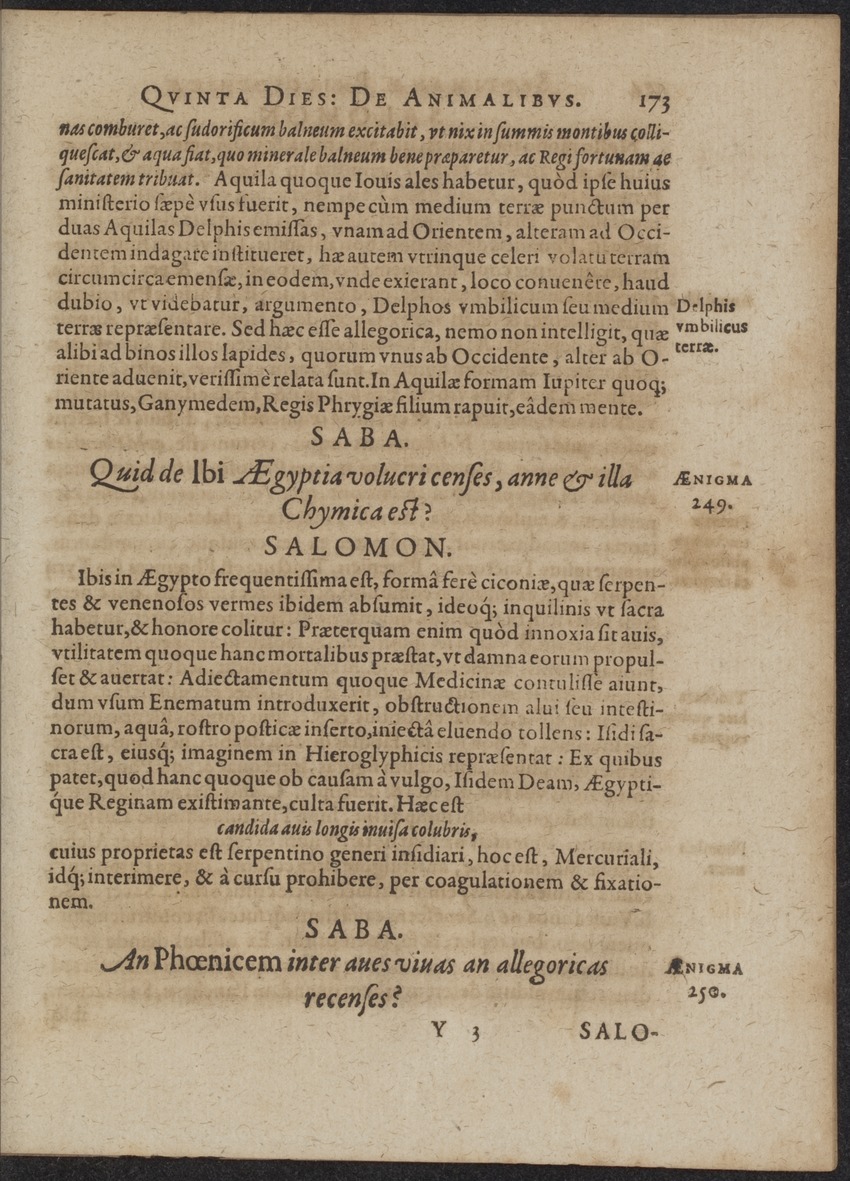 QVINTA DIES: DE ANIMALIBVS. 173
nas comburet, ac sudorificum balneum excitabit, vt nix in summis montibus colli-
quescat, & aqua fiat, quo minerale balneum bene præparetur, ac Regi fortunam ac
sanitatem tribuat. Aquila quoque Iouis ales habetur, quòd ipse huius
ministerio sæpè vsus fuerit, nempe cùm medium terræ punctum per
duas Aquilas Delphis emissas, vnam ad Orientem, alteram ad Occi-
dentem indagare institueret, hæ autem vtrinque celeri volatu terram
circumcirca emensæ, in eodem, vnde exierant, loco conuenêre, haud
dubio, vt videbatur, argumento, Delphos vmbilicum seu medium
terræ repræsentare. Sed hæc esse allegorica, nemo non intelligit, quæ
alibi ad binos illos lapides, quorum vnus ab Occidente, alter ab O-
riente aduenit, verissimè relata sunt. In Aquilæ formam Iupiter quoq;
mutatus, Ganymedem, Regis Phrygiæ filium rapuit, eâdem mente.
Delphis
vmbilicus
terræ.
SABA.
Quid de Ibi Ægyptia volucri censes, anne & illa
Chymica est?
ÆNIGMA
249.
SALOMON.
Ibis in Ægypto frequentissima est, formâ ferè ciconiæ, quæ serpen-
tes & venenosos vermes ibidem absumit, ideoq́; inquilinis vt sacra
habetur, & honore colitur: Præterquam enim quòd innoxia sit auis,
vtilitatem quoque hanc mortalibus præstat, vt damna eorum propul-
set & auertat: Adiectamentum quoque Medicinæ contulisse aiunt,
dum vsum Enematum introduxerit, obstructionem alui seu intesti-
norum, aquâ, rostro posticæ inserto, iniectâ eluendo tollens: Isidi sa-
cra est, eiusq́; imaginem in Hieroglyphicis repræsentat: Ex quibus
patet, quod hanc quoque ob causam à vulgo, Isidem Deam, Ægypti-
q́ue Reginam existimante, culta fuerit. Hæc est
candida auis longis inuisa colubris,
cuius proprietas est serpentino generi insidiari, hoc est, Mercuriali,
idq́; interimere, & à cursu prohibere, per coagulationem & fixatio-
nem.
SABA.
An Phœnicem inter aues viuas an allegoricas
recenses?
ÆNIGMA
250.
Y 3 SALO-